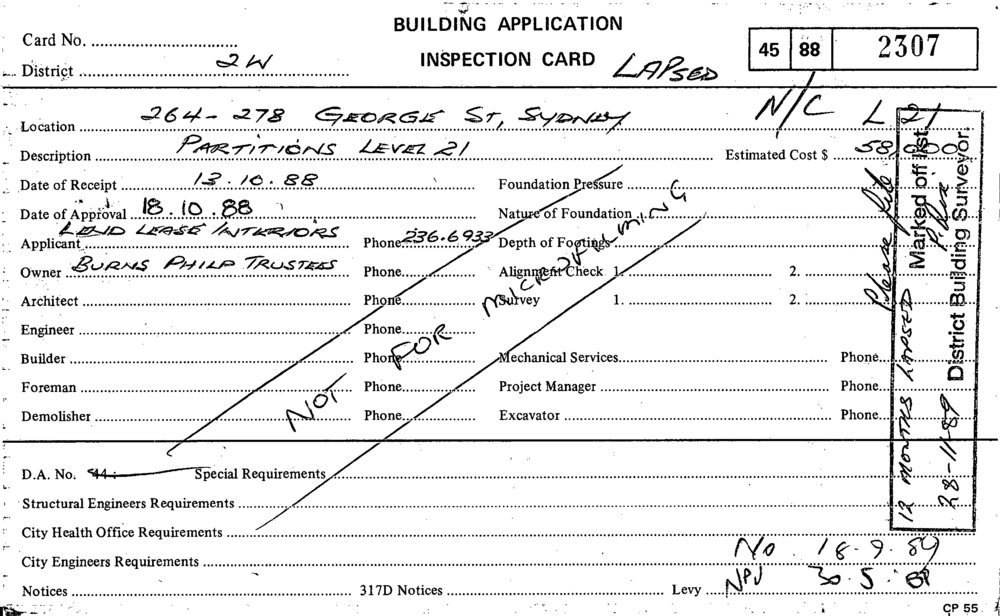 BUILDING APPLICATION
INSPECTION CARD
Card No.
District 2W
LAPSED
45 88 2307
N/C
Location 264-278 GEORGE ST, SYDNEY
L 21
Description PARTITIONS LEVEL 21 Estimated Cost $ 58,000
Date of Receipt 13.10.88 Foundation Pressure
Date of Approval 18.10.88 Nature of Foundation
Applicant LEND LEASE INTERIORS Phone 236.6933 Depth of Footings
Owner BURNS PHILP TRUSTEES Phone Alignment Check 1. 2.
Architect Phone Survey 1. 2.
Engineer Phone
Builder Phone Mechanical Services Phone
Foreman Phone Project Manager Phone
Demolisher Phone Excavator Phone
NOT FOR MICROFILMING
Please file
Marked off list
District Building Surveyor.
12 MONTHS LAPSED
28-11-89
D.A. No. 44: Special Requirements
Structural Engineers Requirements
City Health Office Requirements
City Engineers Requirements
No 18.9.89
Notices 317D Notices Levy NPJ 30.5.89
CP 55